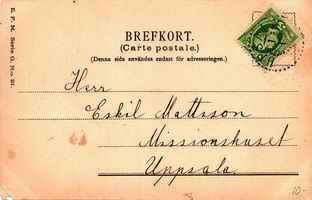 E. F. M. Serie G. No 21.
BREFKORT.
(Carte postale.)
(Denna sida användes endast för adresseringen.)
Herr
Eskil Mattsson
Missionshuset
Uppsala.
10-